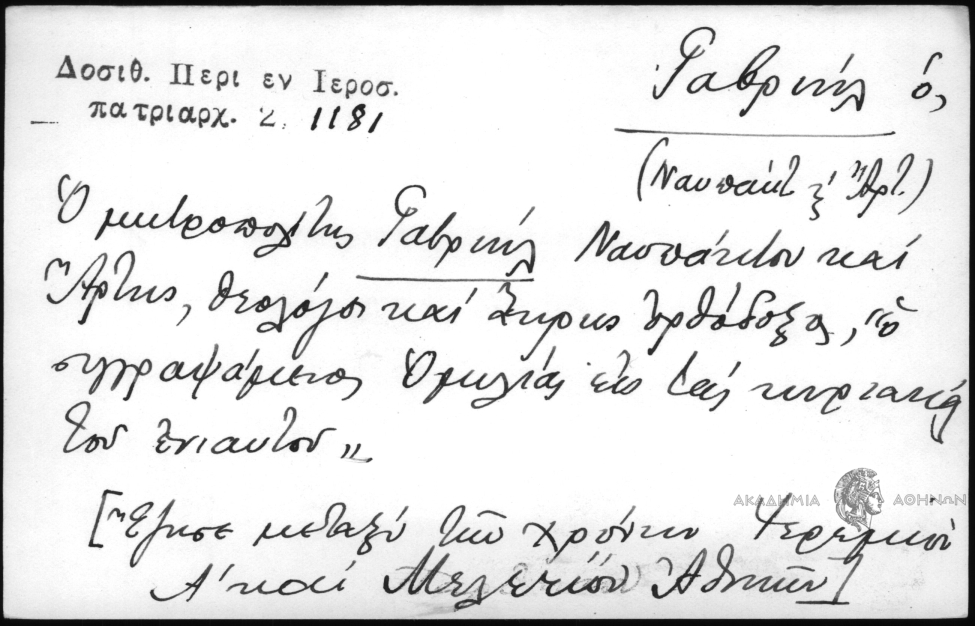 Δοσιθ. Περι εν Ιεροσ.
πατριαρχ. Σ. 1181
Γαβριήλ ὁ,
(Ναυπάκτ. ξ Ἄρτ.)
Ὁ μητροπολίτης Γαβριήλ Ναυπάκτου καί
Ἄρτης, θεολόγος καί ἄκρως ὀρθόδοξος, "ὁ
συγγραψάμενος Ὁμιλίας εἰς τάς κυριακάς
τοῦ ἐνιαυτοῦ"
[Ἔζησε μεταξύ τῶν χρόνων Ἱερεμίου
Α' καί Μελετίου Ἀθηνῶν]
ΑΚΑΔΗΜΙΑ ΑΘΗΝΩΝ